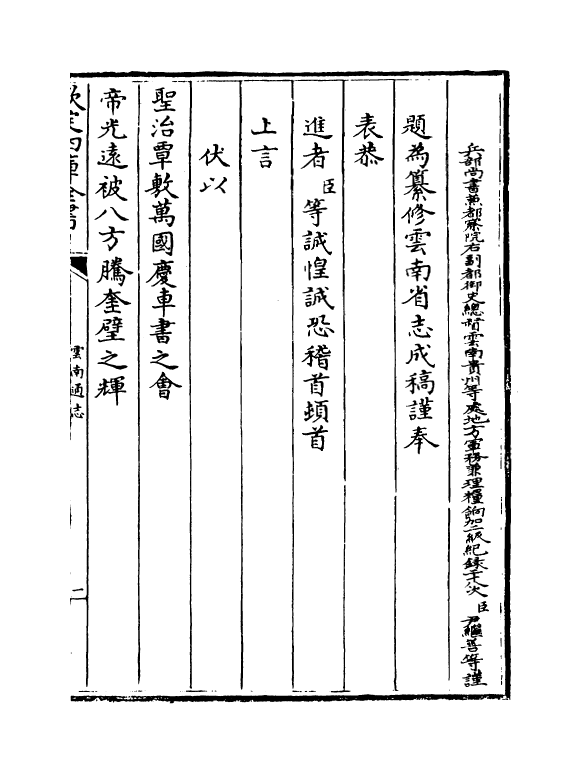 兵部尚書兼都察院右副都御史總督雲南貴州等處地方軍務兼理糧餉加二級紀錄二十八次臣尹繼善等謹
題為纂修雲南省志成稿謹奉
表恭
進者臣等誠惶誠恐稽首頓首
上言
伏以
聖治覃敷萬國慶車書之會
帝光遠被八方騰奎璧之輝
欽定四庫全書
雲南通志
二